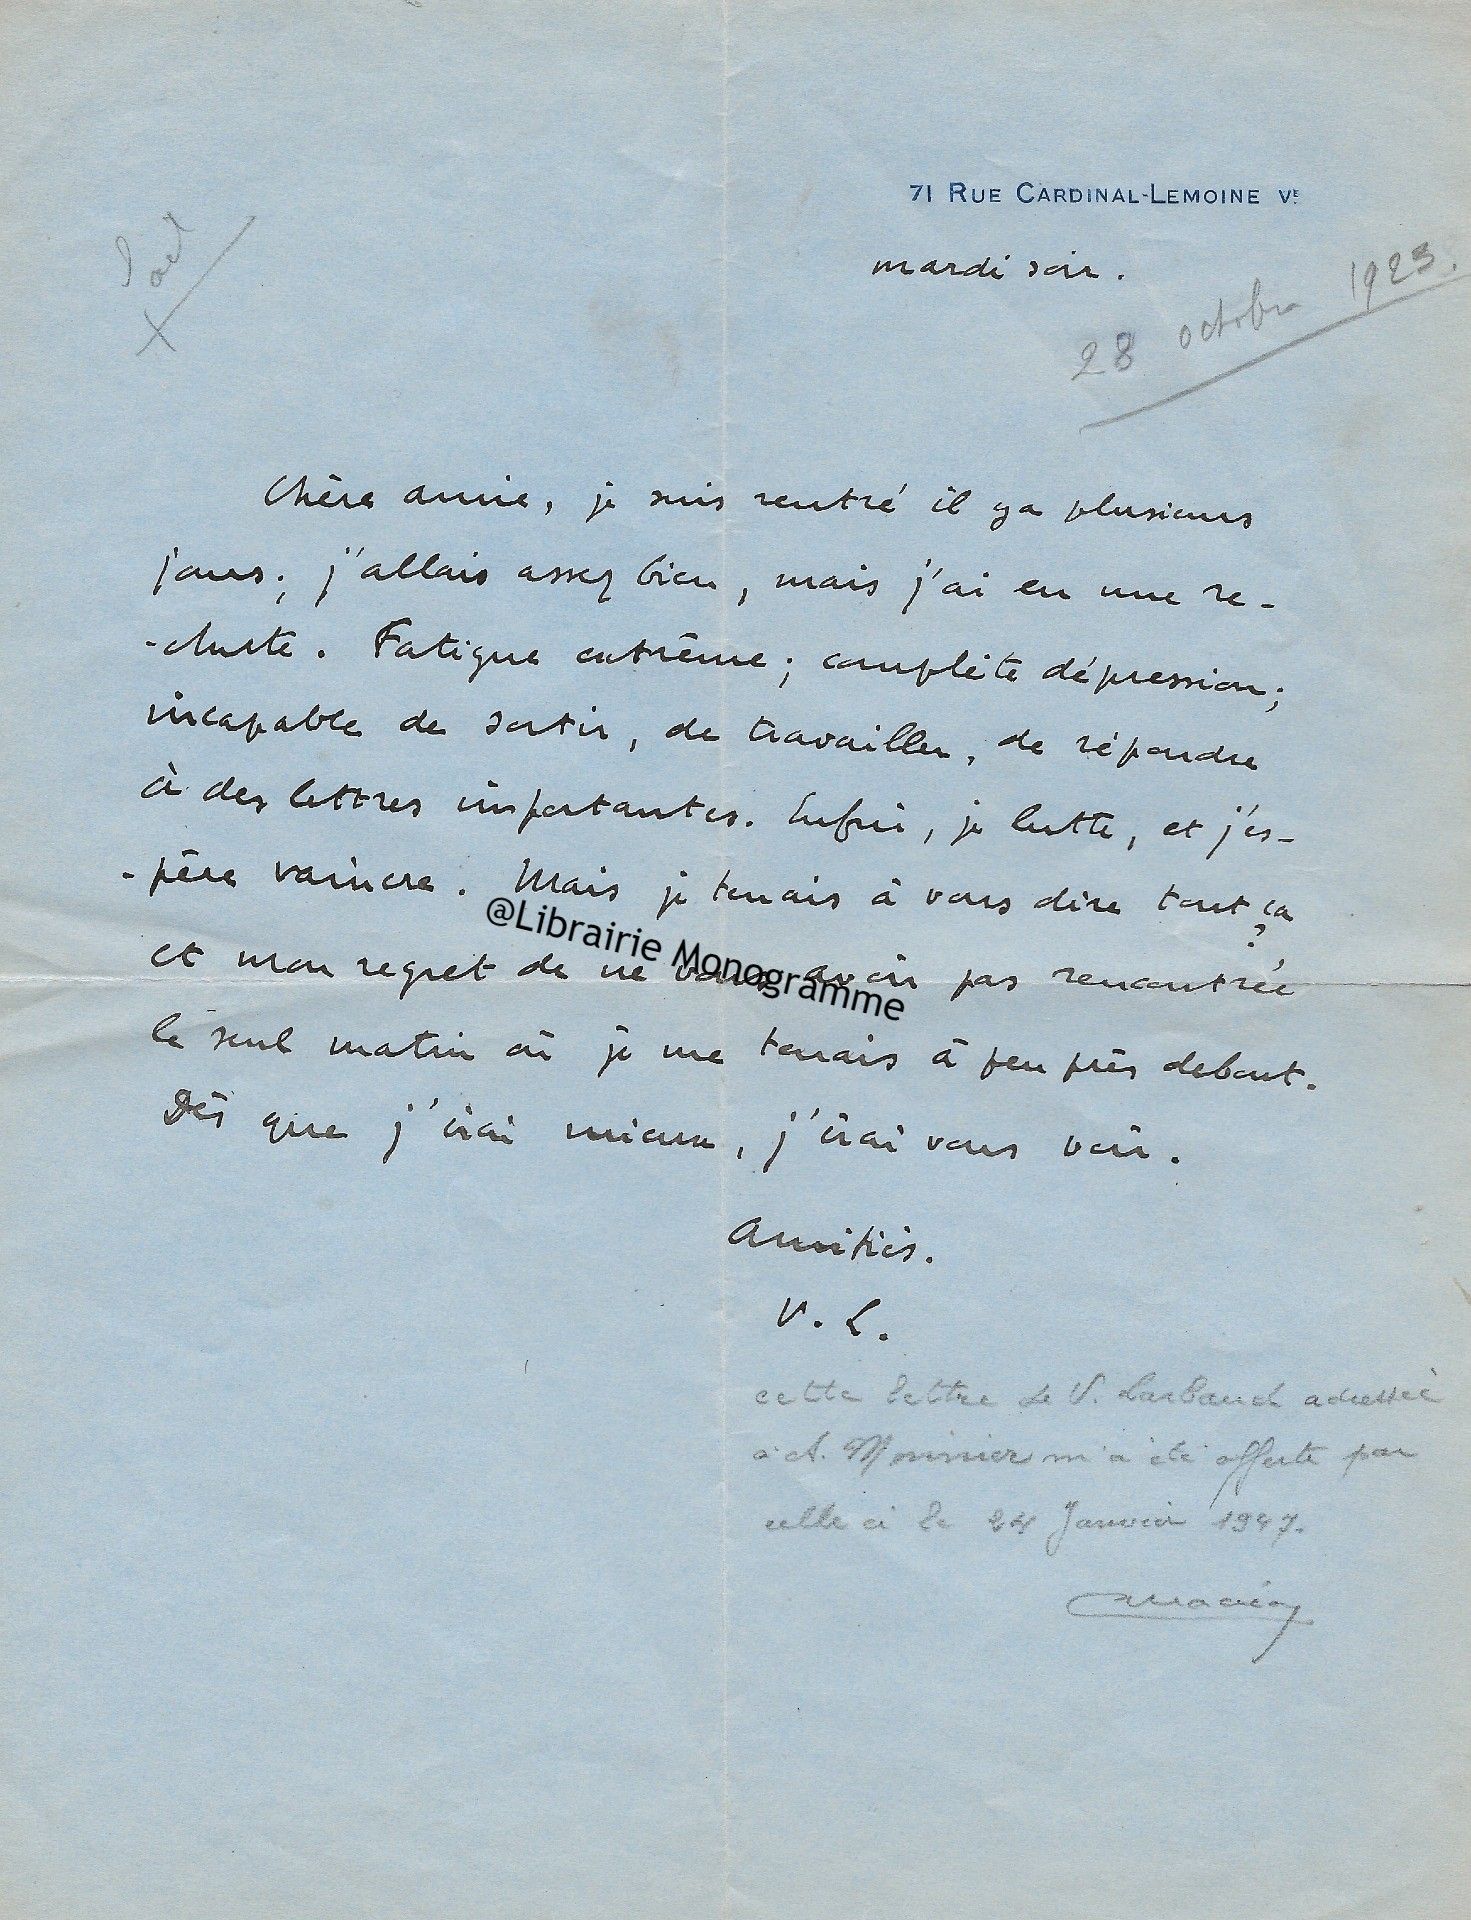 71 RUE CARDINAL-LEMOINE Vᴱ
mardi soir.
28 octobre 1923.
Chère amie, je suis rentré il y a plusieurs
jours ; j'allais assez bien, mais j'ai eu une re-
-chute. Fatigue extrême ; complète dépression ;
incapable de sortir, de travailler, de répondre
à des lettres importantes. Enfin, je lutte, et j'es-
-père vaincre. Mais je tenais à vous dire tout ça
et mon regret de ne vous avoir pas rencontrée
@Librairie Monogramme
le seul matin où je me tenais à peu près debout.
Dès que j'irai mieux, j'irai vous voir.
Amitiés.
V. L.
cette lettre de V. Larbaud adressée
à A. Monnier m'a été offerte par
celle ci le 24 Janvier 1947.